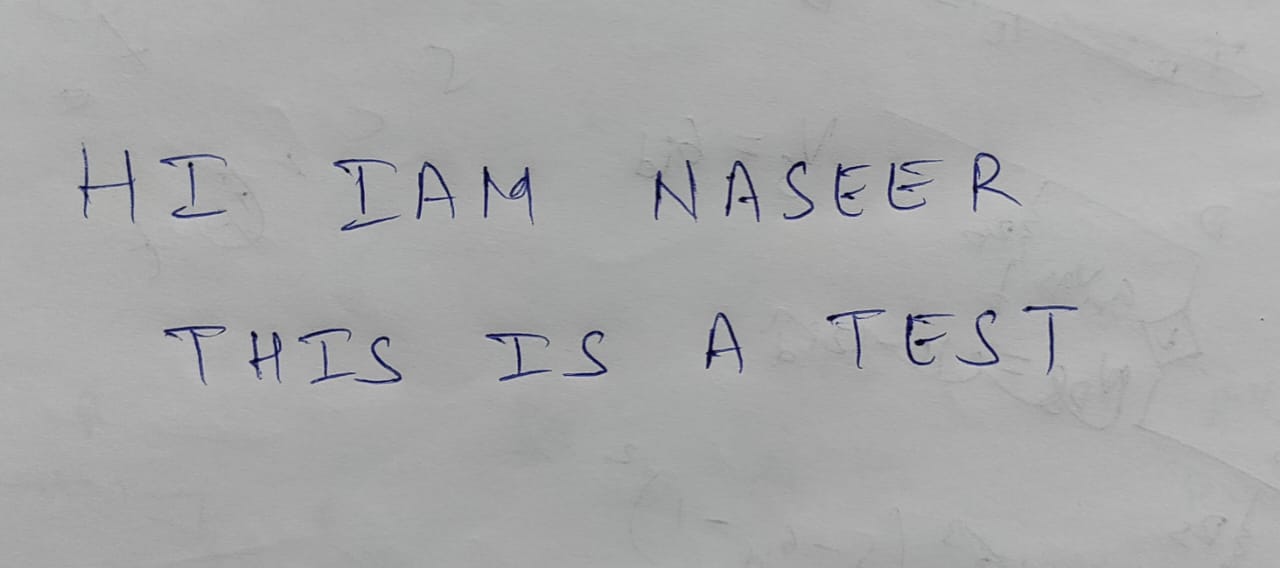 HI IAM NASEER
THIS IS A TEST